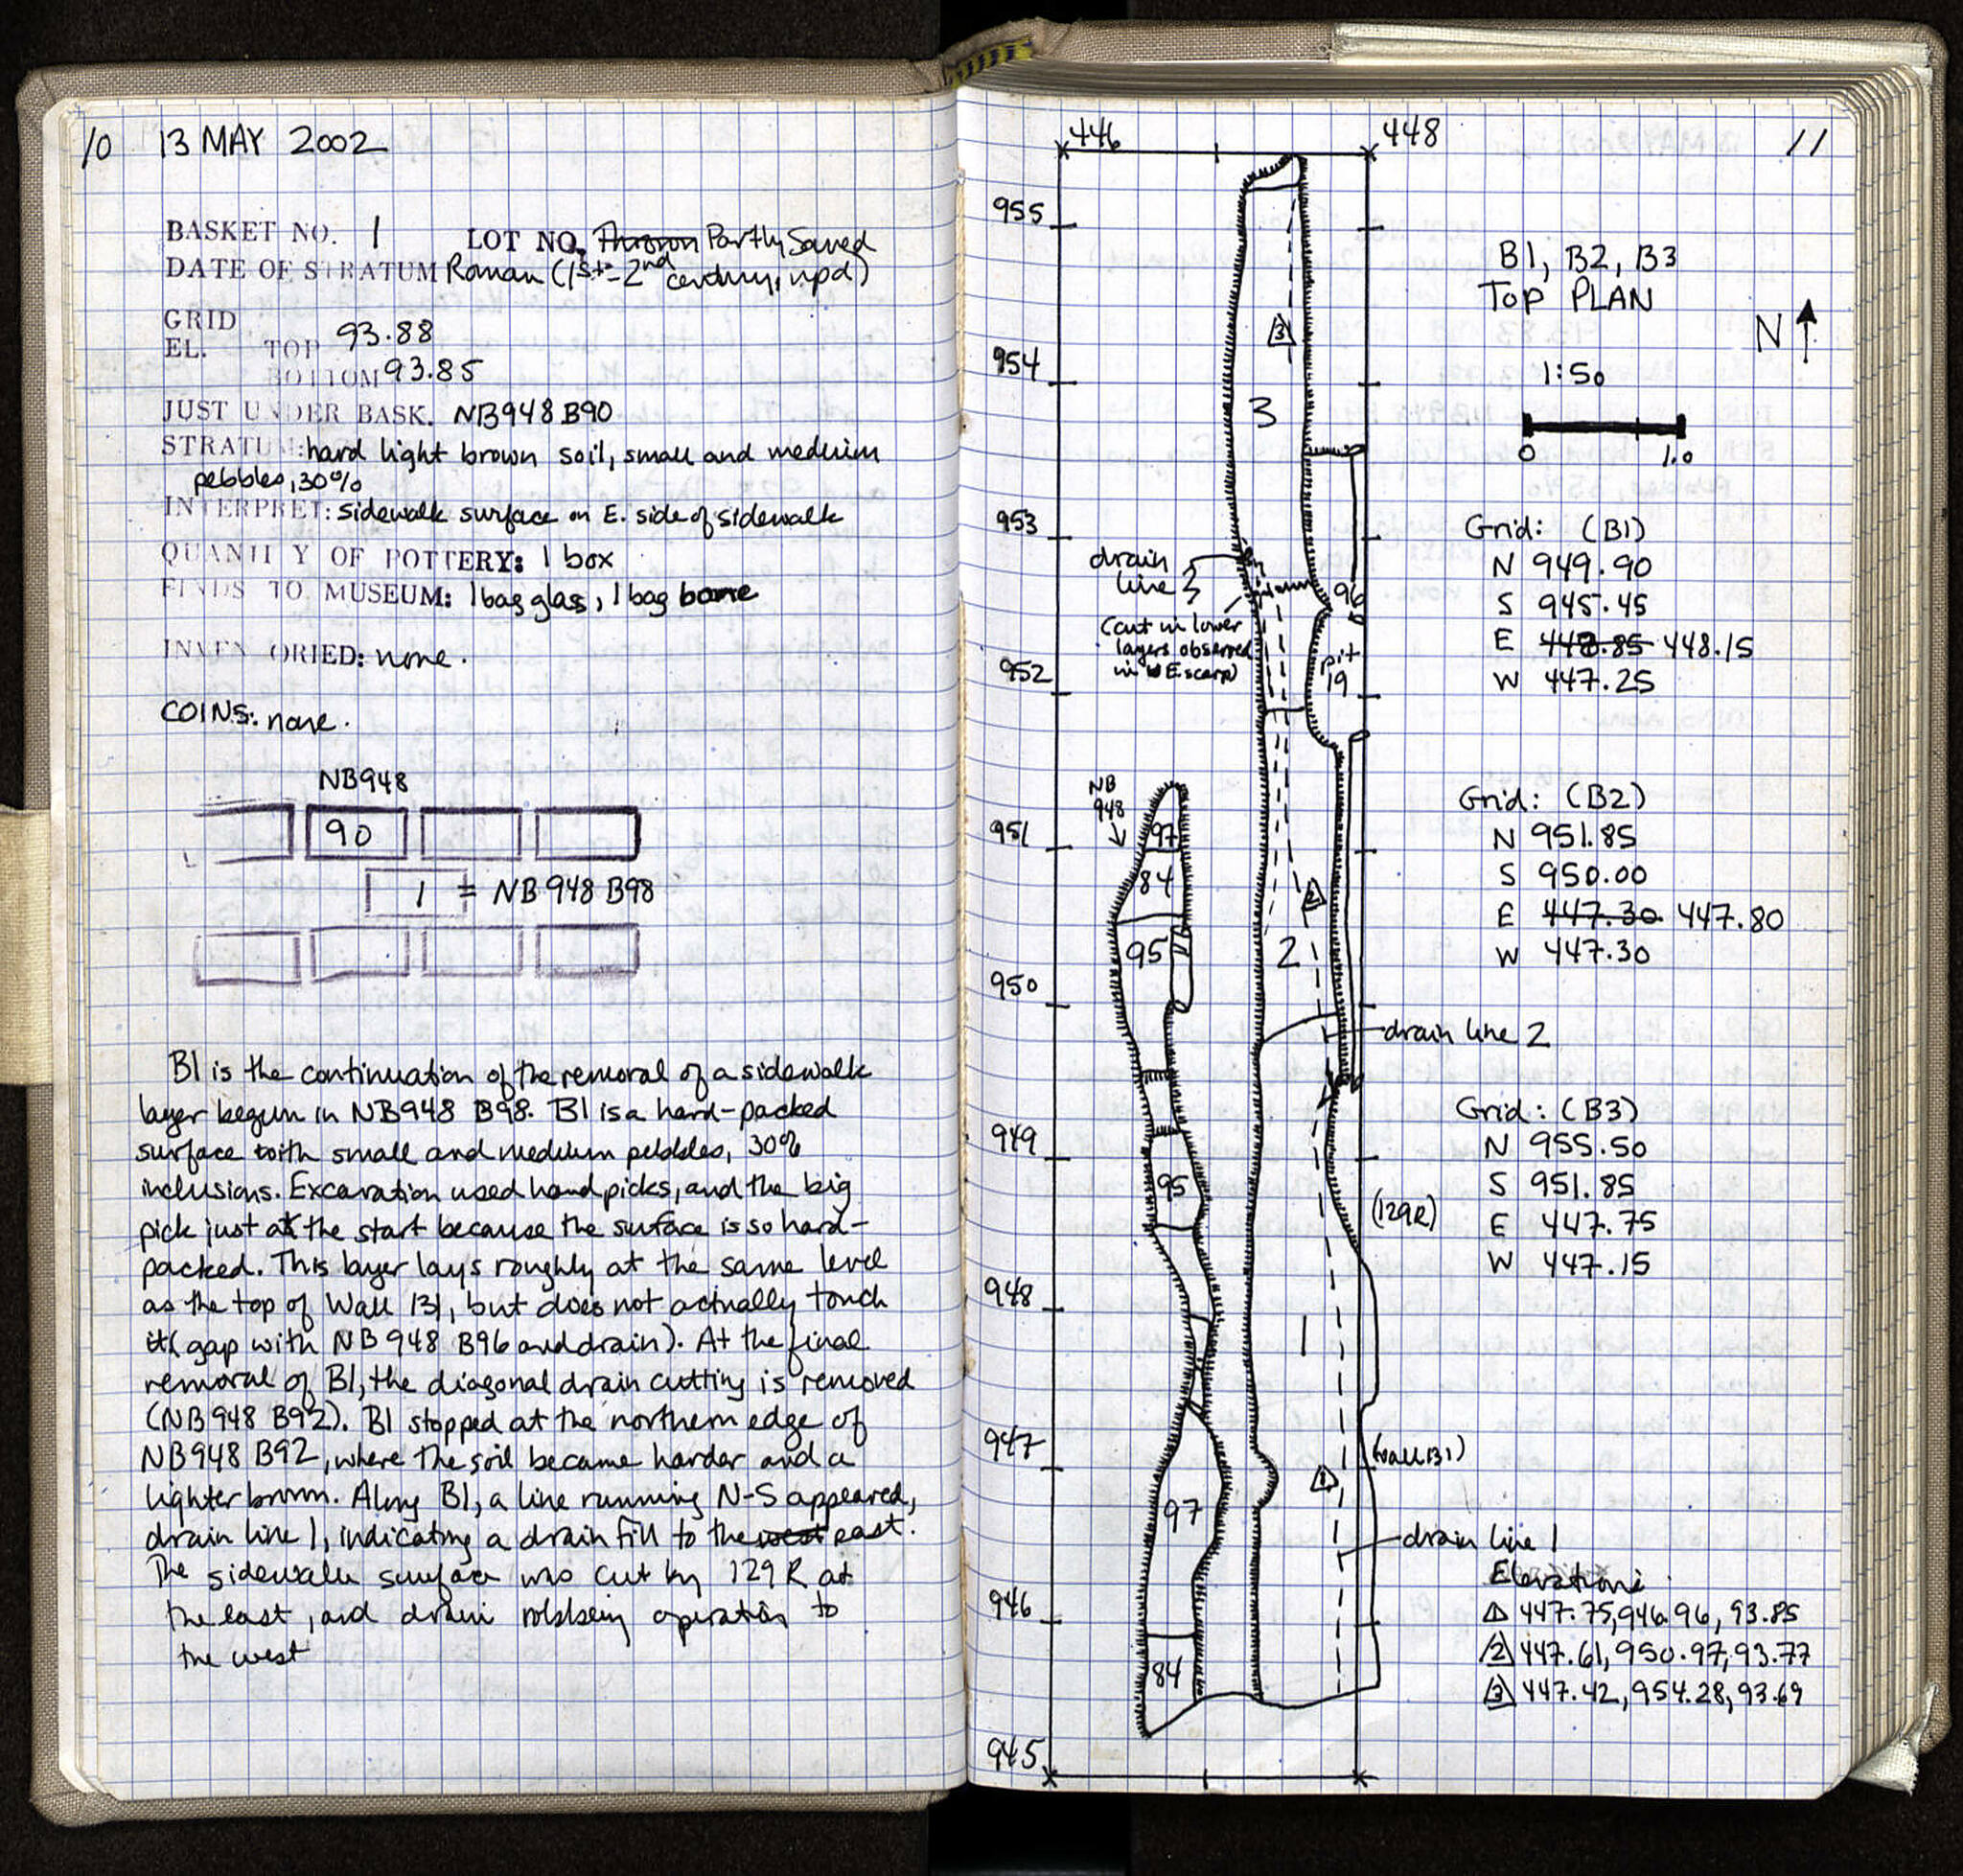 10 13 MAY 2002
BASKET NO. 1 LOT NO. Thrown Partly Saved
DATE OF STRATUM Roman (1st-2nd century, npd)
GRID
EL. TOP 93.88
BOTTOM 93.85
JUST UNDER BASK. NB948 B90
STRATUM: hard light brown soil, small and medium
pebbles, 30%
INTERPRET: sidewalk surface on E. side of sidewalk
QUANTITY OF POTTERY: 1 box
FINDS TO MUSEUM: 1 bag glass, 1 bag bone
INVENTORIED: none.
COINS: none.
NB948
90
1 = NB948 B98
B1 is the continuation of the removal of a sidewalk
layer begun in NB948 B98. B1 is a hard-packed
surface with small and medium pebbles, 30%
inclusions. Excavation used hand picks, and the big
pick just at the start because the surface is so hard-
packed. This layer lays roughly at the same level
as the top of Wall 131, but does not actually touch
it (gap with NB948 B96 and drain). At the final
removal of B1, the diagonal drain cutting is removed
(NB948 B92). B1 stopped at the northern edge of
NB948 B92, where the soil became harder and a
lighter brown. Along B1, a line running N-S appeared,
drain line 1, indicating a drain fill to the west east.
The sidewalk surface was cut by 129R at
the east, and drain robbing operation to
the west
446 448 11
955
954
953
952
951
950
949
948
947
946
945
3
3
drain
line
(cut in lower
layers observed
in W E scarp)
96
pit
19
NB
948
97
84
95
2
2
95
1
1
97
84
drain line 2
(129R)
(wall 131)
drain line 1
B1, B2, B3
TOP PLAN
N
1:50
0 1.0
Grid: (B1)
N 949.90
S 945.45
E 448.85 448.15
W 447.25
Grid: (B2)
N 951.85
S 950.00
E 447.30 447.80
W 447.30
Grid: (B3)
N 955.50
S 951.85
E 447.75
W 447.15
Elevations
1 447.75, 946.96, 93.85
2 447.61, 950.97, 93.77
3 447.42, 954.28, 93.69